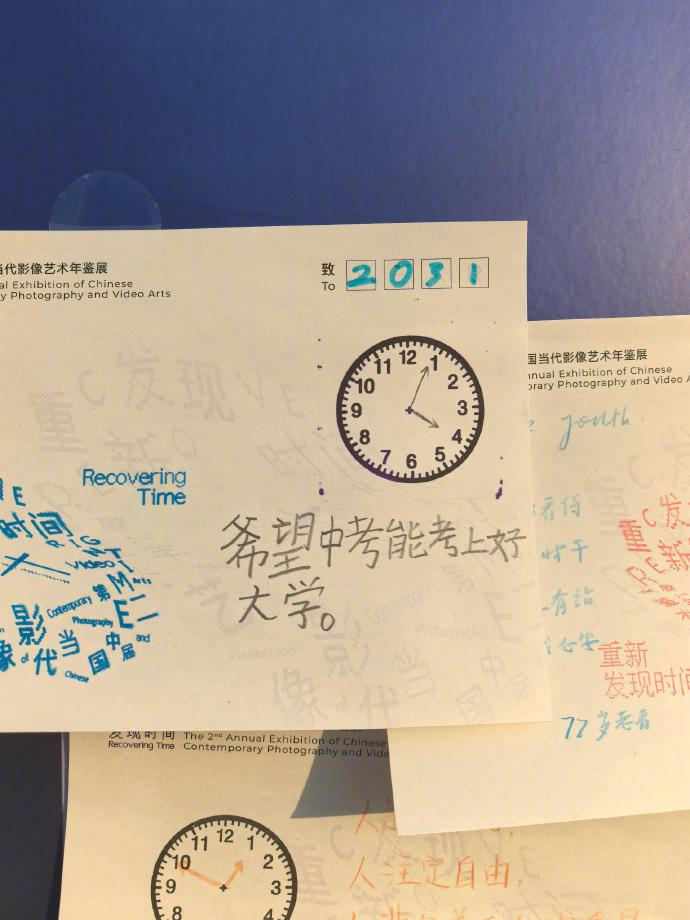 当代影像艺术年鉴展
al Exhibition of Chinese
y Photography and Video Arts
致
To
2031
12
1
2
3
4
5
6
7
8
9
10
11
重
C
发
现
VE
新
时间
Recovering
Time
E
时间
RIGHT
Video
M
Arts
第
Contemporary
影
Photography
E
二
像
of
代
当
Chinese
国
中
届
and
希望中考能考上好
大学。
国当代影像艺术年鉴展
nnual Exhibition of Chinese
orary Photography and Video A
youth.
看待
时干
有治
重
C
发
新
E
重新
发现时间
77岁老者
发现时间
Recovering Time
The 2nd Annual Exhibition of Chinese
Contemporary Photography and Vide
12
1
2
3
4
8
9
10
11
人注定自由,